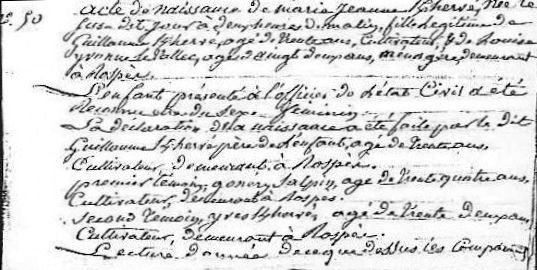 n.° 50 acte de naissance de marie jeanne Lherve, née le
susdit jour à deux heures du matin, fille légitime de
Guillaume Lherve, agé de trente ans, Cultivateur, & de Louise
yvonne Le Vellec, agée de vingt deux ans, ménagère, demeurant
à Rospez.
L'enfant présenté à l'officier de l'état Civil a été
Reconnu être du sexe féminin.
La déclaration de la naissance a été faite par le dit
Guillaume Lherve père de l'enfant, agé de trente ans,
Cultivateur, demeurant à Rospez.
premier témoin, gonery Salpin, agé de trente quatre ans,
Cultivateur, demeurant à Rospez.
Second témoin, yves Lherve, agé de trente deux ans
Cultivateur, demeurant à Rospez.
Lecture donnée de ce que dessus, les Comparants